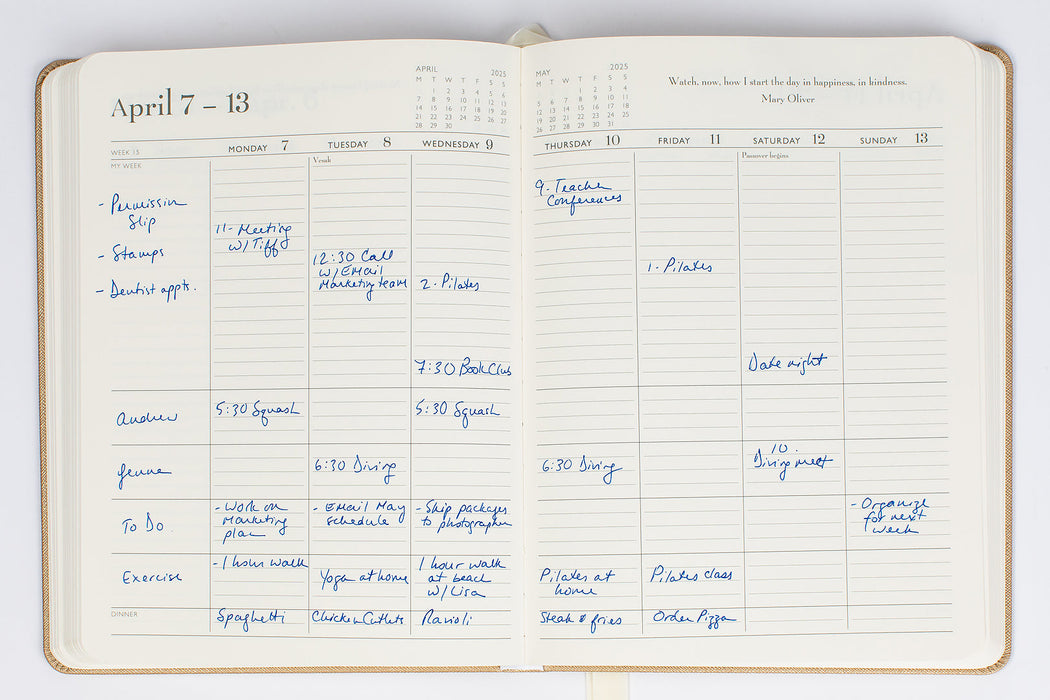 April 7 – 13
APRIL 2025
M T W T F S S
1 2 3 4 5 6
7 8 9 10 11 12 13
14 15 16 17 18 19 20
21 22 23 24 25 26 27
28 29 30
MAY 2025
M T W T F S S
1 2 3 4
5 6 7 8 9 10 11
12 13 14 15 16 17 18
19 20 21 22 23 24 25
26 27 28 29 30 31
Watch, now, how I start the day in happiness, in kindness.
Mary Oliver
WEEK 15
MONDAY 7
TUESDAY 8
WEDNESDAY 9
THURSDAY 10
FRIDAY 11
SATURDAY 12
SUNDAY 13
MY WEEK
- Permission
Slip
- Stamps
- Dentist appts.
11- Meeting
w/ Tiffy
Vesak
12:30 Call
w/ EMail
Marketing team
2 - Pilates
7:30 Book Club
9 - Teacher
Conferences
1 - Pilates
Passover begins
Date night
Andrew
5:30 Squash
5:30 Squash
Jenna
6:30 Diving
6:30 Diving
10
Diving meet
To Do
- Work on
Marketing
plan
- EMail May
schedule
- Ship packages
to photographer
- Organize
for next
week
Exercise
- 1 hour walk
Yoga at home
1 hour walk
at beach
w/ Lisa
Pilates at
home
Pilates class
DINNER
Spaghetti
Chicken Cutlets
Ravioli
Steak & fries
Order Pizza